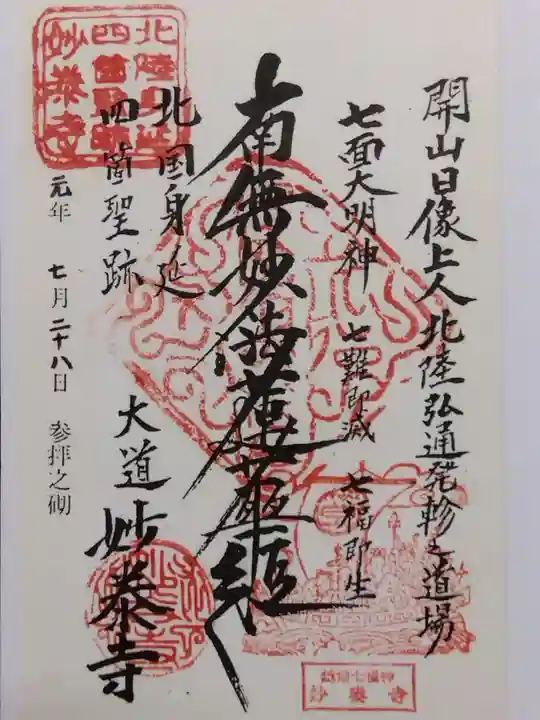 開山日像上人北陸弘通発軫之道場
七面大明神 七難即滅 七福即生
南無妙法蓮華経
北国身延
四箇聖跡
大道 妙泰寺
元年 七月二十八日 参拝之砌
北陸身延
四箇聖跡
妙泰寺
妙泰寺